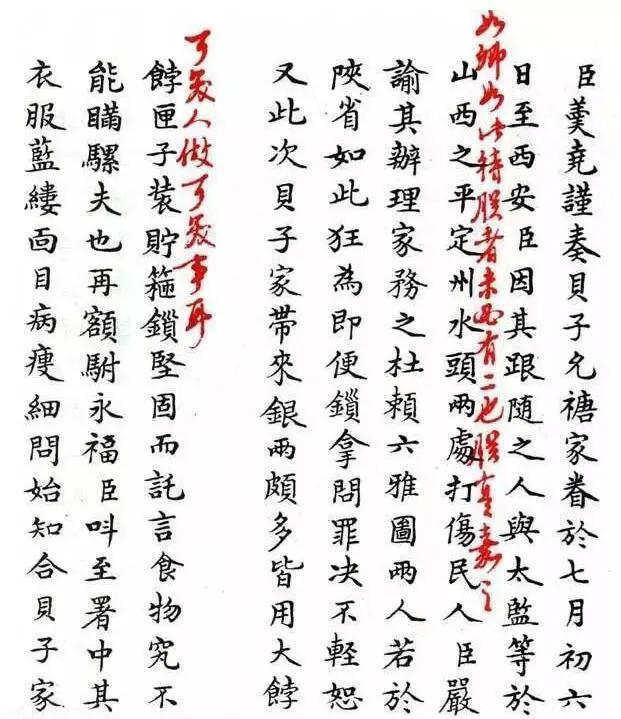 臣羹堯謹奏貝子允禟家眷於七月初六
日至西安臣因其跟隨之人與太監等於
如卿如此待朕者未必有二也朕真嘉之
山西之平定州水頭兩處打傷民人臣嚴
諭其辦理家務之杜賴六雅圖兩人若於
陝省如此狂為即便鎖拿問罪决不輕恕
又此次貝子家帶來銀兩頗多皆用大餑
可笑人做可笑事耳
餑匣子裝貯箍鎖堅固而託言食物究不
能瞞騾夫也再額駙永福臣呌至署中其
衣服藍縷面目病瘦細問始知合貝子家